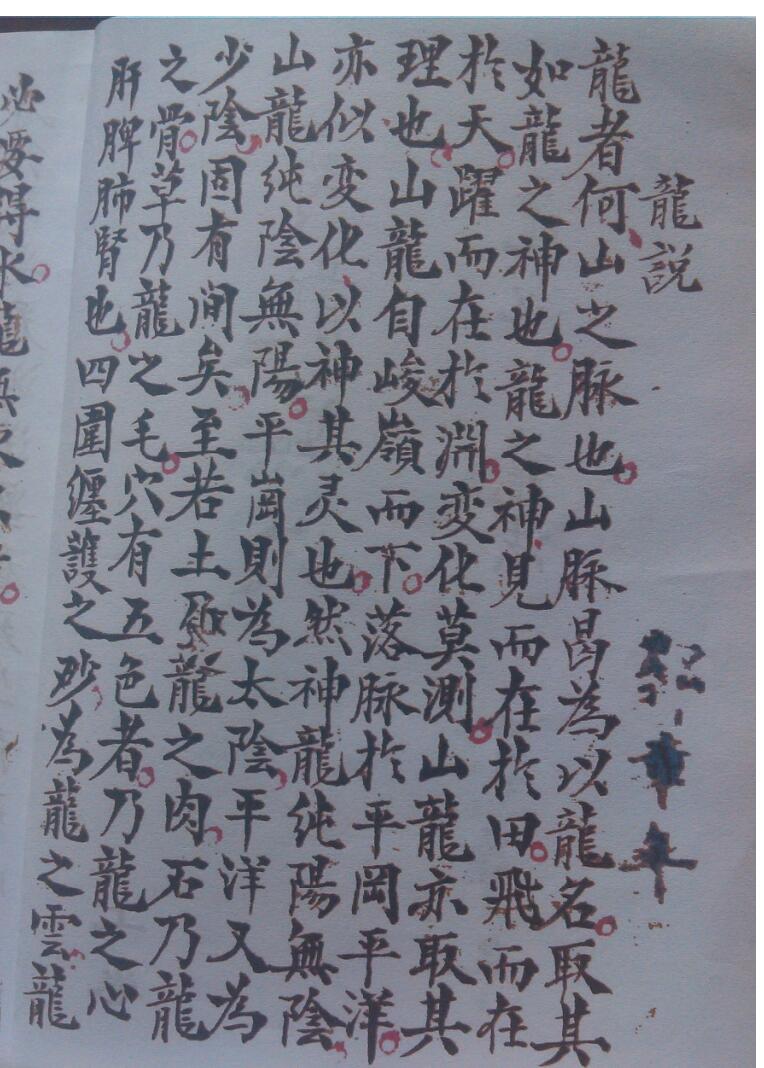 龍説
龍者何山之脉也山脉曷為以龍名取其
如龍之神也龍之神見而在於田飛而在
於天躍而在於淵變化莫測山龍亦取其
理也山龍自峻嶺而下落脉於平岡平洋
亦似變化以神其灵也然神龍純陽無陰
山龍純陰無陽平崗則為太陰平洋又為
少陰固有间矣至若土乃龍之肉石乃龍
之骨草乃龍之毛穴有五色者乃龍之心
肝脾肺腎也四圍纒護之砂為龍之雲龍
必要得水龍無